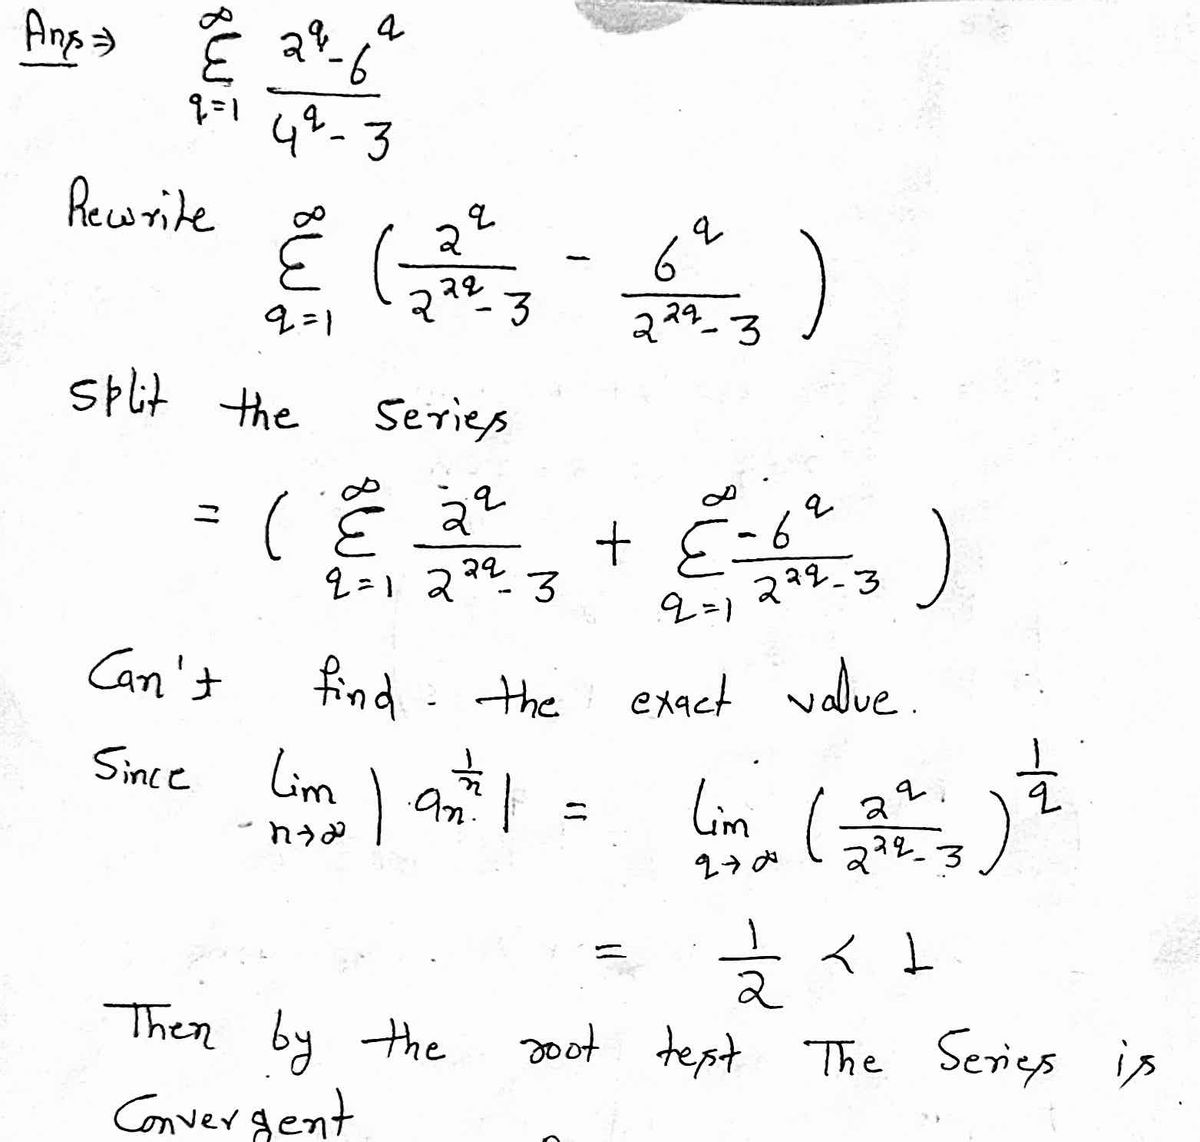 Ans ⇒ ∞ Σ q=1 (2^q - 6^q) / (4^q - 3)
Rewrite ∞ Σ q=1 ( 2^q / (2^{2q} - 3) - 6^q / (2^{2q} - 3) )
Split the Series
= ( ∞ Σ q=1 2^q / (2^{2q} - 3) + ∞ Σ q=1 -6^q / (2^{2q} - 3) )
Can't find the exact value.
Since Lim n→∞ | a_n^{1/n} | = Lim q→∞ ( 2^q / (2^{2q} - 3) )^{1/q}
= 1/2 < 1
Then by the root test The Series is
Convergent